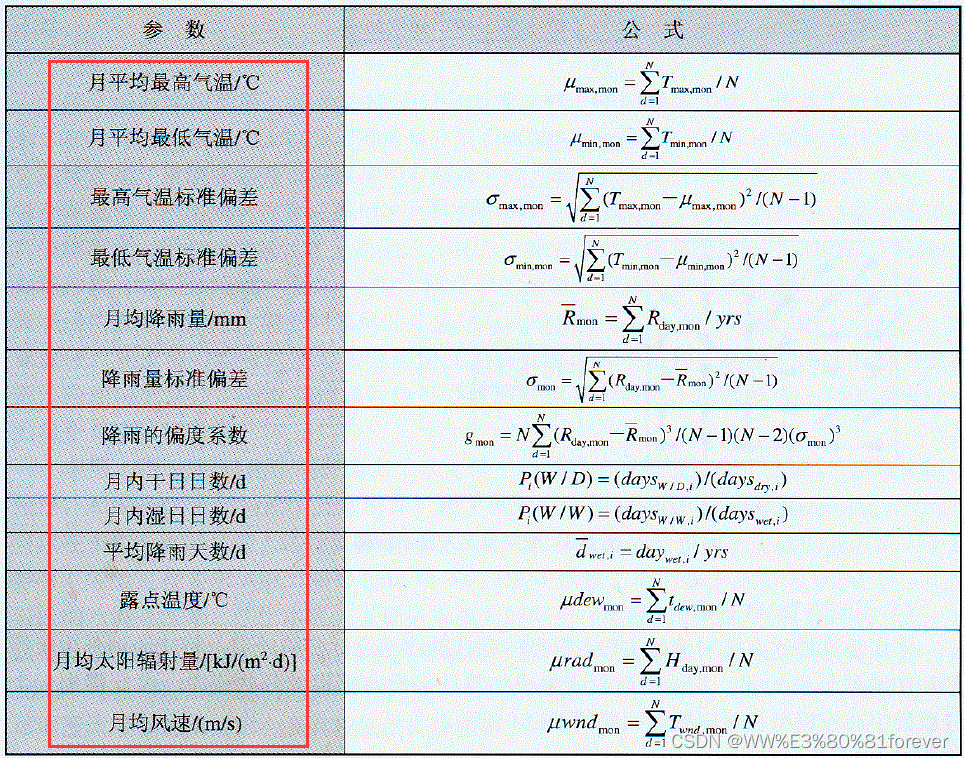 参 数 公 式
月平均最高气温/℃ μmax,mon = ∑d=1N Tmax,mon / N
月平均最低气温/℃ μmin,mon = ∑d=1N Tmin,mon / N
最高气温标准偏差 σmax,mon = √∑d=1N (Tmax,mon—μmax,mon)² /(N－1)
最低气温标准偏差 σmin,mon = √∑d=1N (Tmin,mon—μmin,mon)² /(N－1)
月均降雨量/mm R̅mon = ∑d=1N Rday,mon / yrs
降雨量标准偏差 σmon = √∑d=1N (Rday,mon—R̅mon)² /(N－1)
降雨的偏度系数 gmon = N∑d=1N (Rday,mon—R̅mon)³ /(N－1)(N－2)(σmon)³
月内干日日数/d Pi(W / D) = (daysW/D,i)/(daysdry,i)
月内湿日日数/d Pi(W / W) = (daysW/W,i)/(dayswet,i)
平均降雨天数/d d̅wet,i = daywet,i / yrs
露点温度/℃ μdewmon = ∑d=1N tdew,mon / N
月均太阳辐射量/[kJ/(m²·d)] μradmon = ∑d=1N Hday,mon / N
月均风速/(m/s) μwndmon = ∑d=1N Twnd,mon / N
CSDN @WW%E3%80%81forever